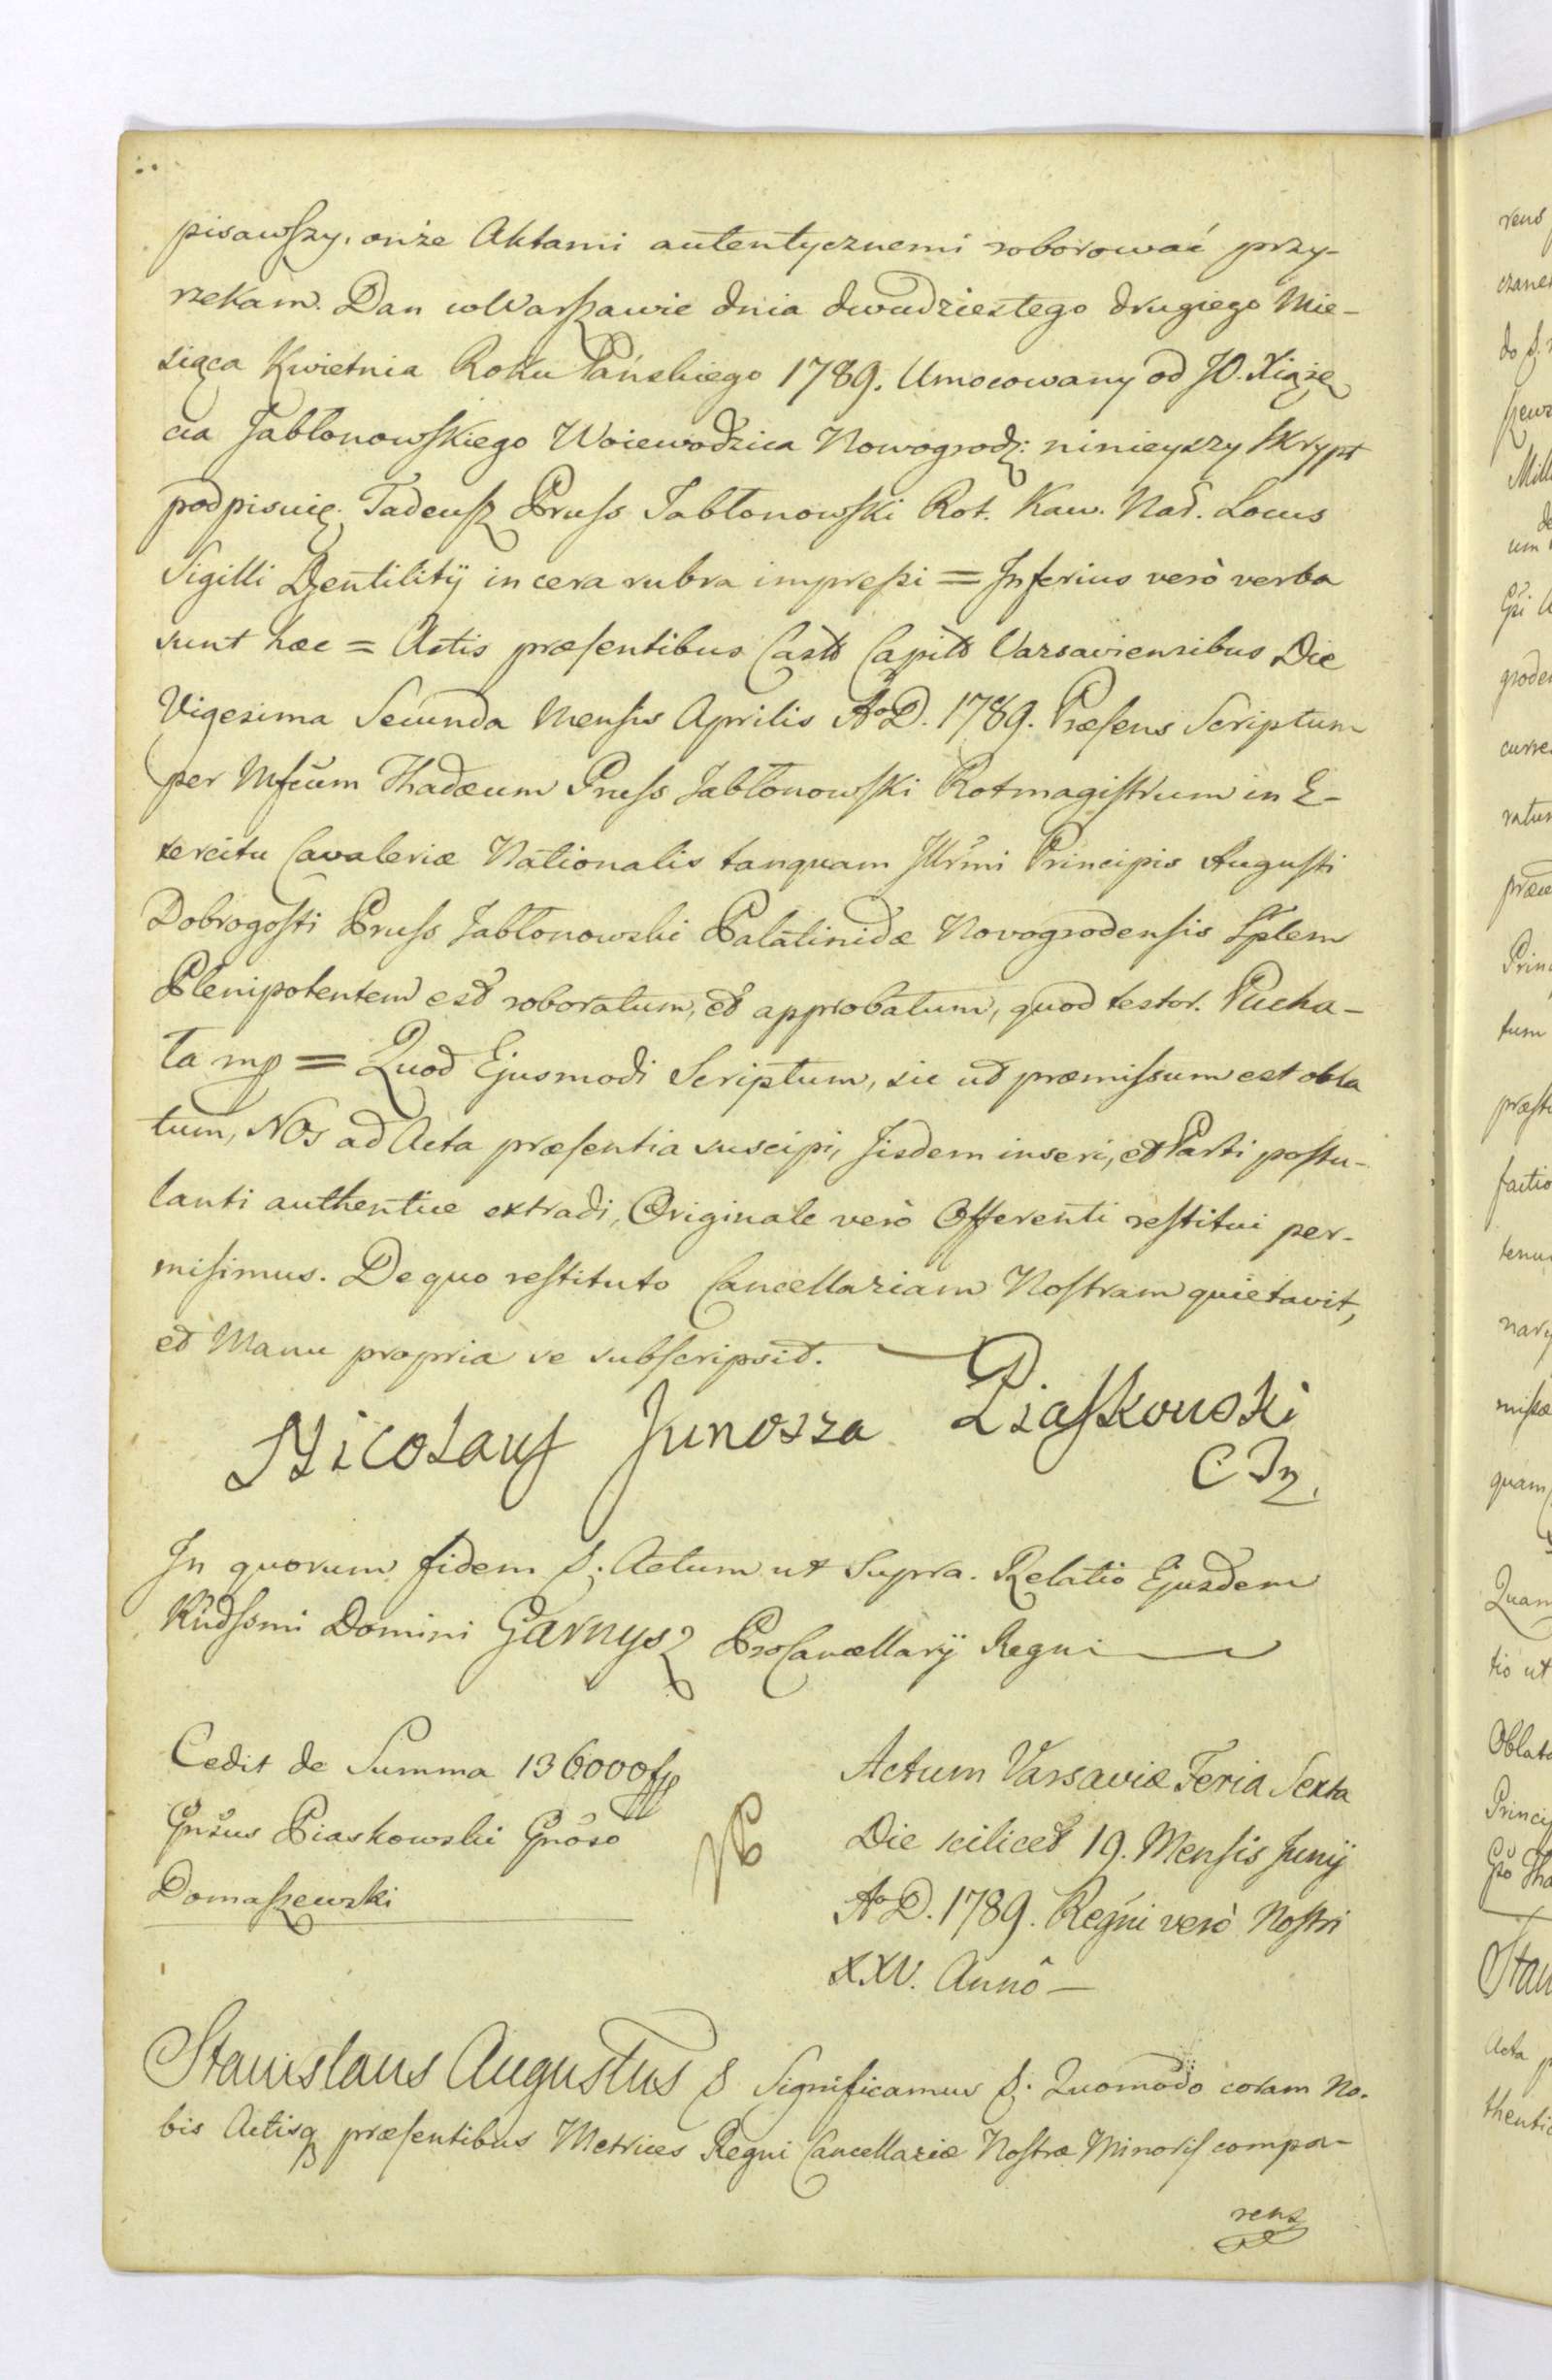 pisawszy, onże Aktami autentycznemi roborować przy-
rzekam. Dan w Warszawie dnia dwudziestego drugiego Mie-
siąca Kwietnia Roku Pańskiego 1789. Umocowany od JO. Xiążę
cia Jabłonowskiego Woiewodzica Nowogrodz: ninieyszy skrypt
podpisuię. Tadeusz Pruss Jabłonowski Rot. Kaw. Nad. Locus
Sigilli Gentilitÿ in cera rubra impressi = Inferius verò verba
sunt hæc = Actis præsentibus Castr Capitl Varsaviensibus Die
Vigesima Secunda Mensis Aprilis Aº D. 1789. Præsens Scriptum
per Mfcum Thadæum Pruss Jabłonowski Rotmagistrum in E-
xercitu Cavaleriæ Nationalis tanquam Illrmi Principis Augusti
Dobrogosti Pruss Jabłonowski Palatinidæ Novogrodensis Splem
Plenipotentem est roboratum, et approbatum, quod testor. Pucha-
ła mp = Quod Ejusmodi Scriptum, sic ut præmissum est obla
tum, Nos ad Acta præsentia suscipi, Iisdem inseri, et Parti postu-
lanti authentice extradi, Originale verò Offerenti restitui per-
misimus. De quo restituto Cancellariam Nostram quietavit,
et Manu propria se subscripsit.
Nicolaus Junosza Piaskowski
In quorum fidem &. Actum ut Supra. Relatio Ejusdem
Rndssmi Domini Garnysz ProCancellarÿ Regni
Cedit de Summa 136000 fp
Gnsus Piaskowski Gnoso
Domaszewski
Actum Varsaviæ Feria Sexta
Die scilicet 19. Mensis Junÿ
Aº D. 1789. Regni verò Nostri
XXV. Annô
Stanislaus Augustus & Significamus &. Quomodo coram No-
bis Actisq præsentibus Metrices Regni Cancellariæ Nostræ Minoris compa-
rens